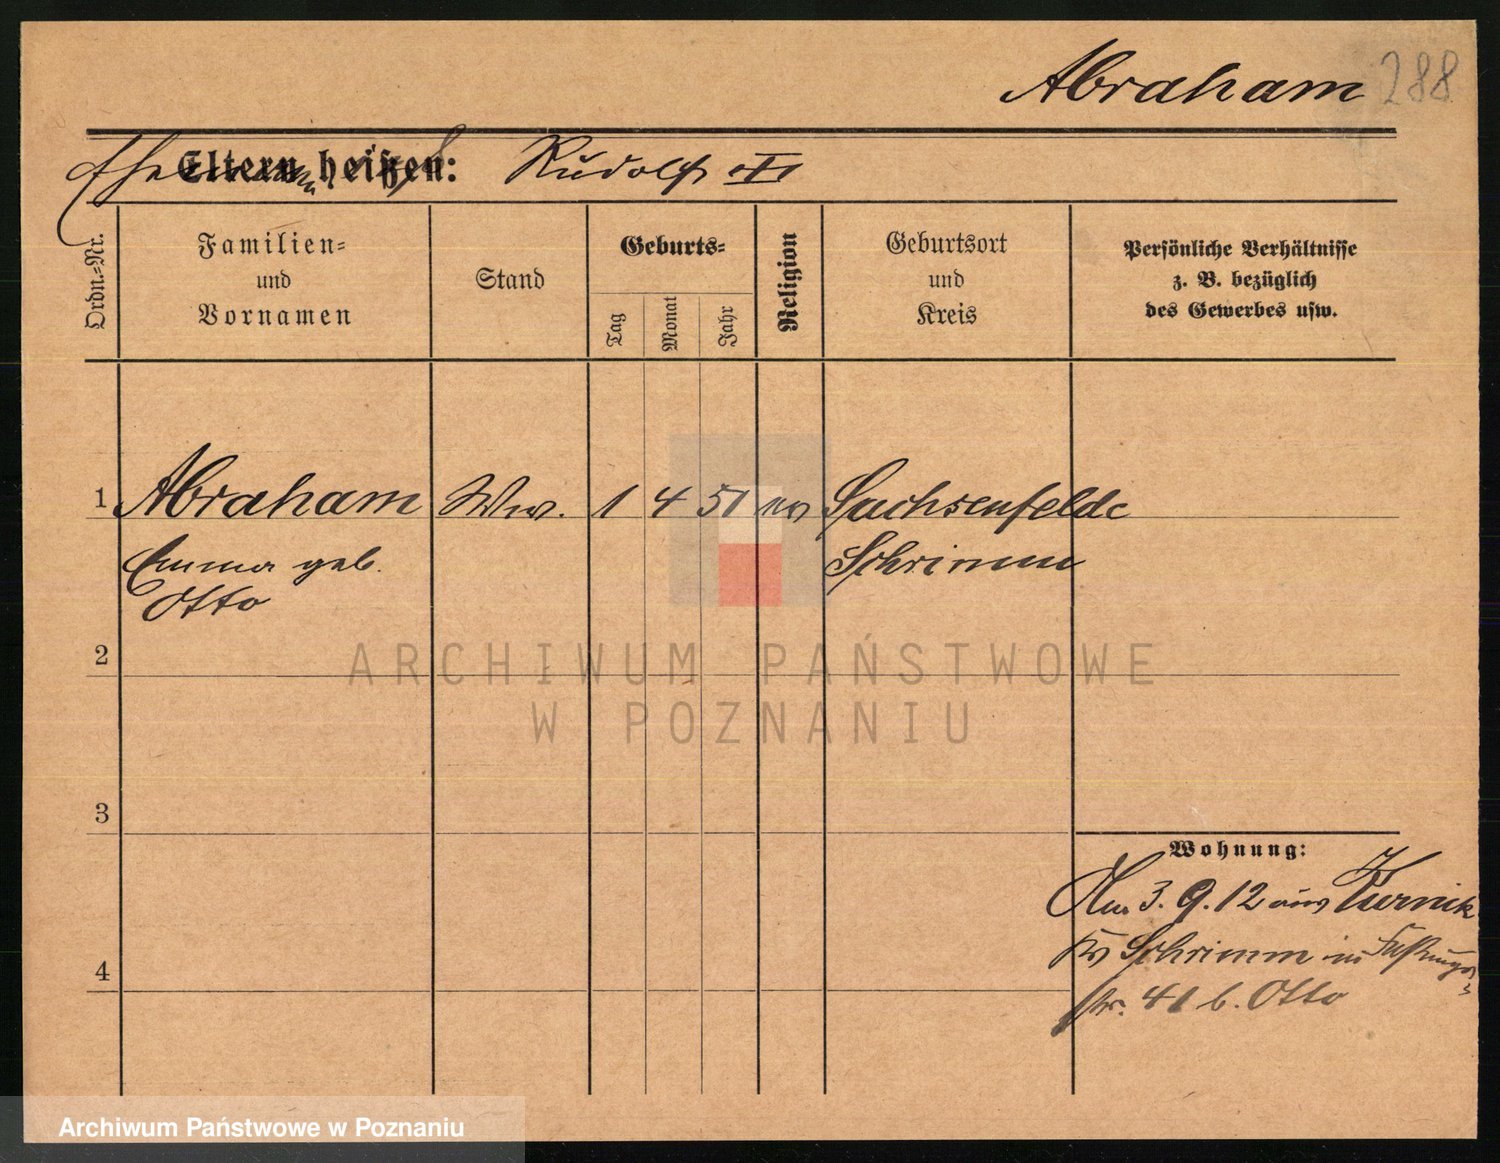 Abraham 288
Eltern heißen: Rudolf
Ordn.=Nr.
Familien=
und
Vornamen
Stand
Geburts=
Tag
Monat
Jahr
Religion
Geburtsort
und
Kreis
Persönliche Verhältnisse
z. B. bezüglich
des Gewerbes usw.
1 Abraham Ww. 1 4 51 ev Sachsenfelde
Emma geb. Schrimm
Otto
2
3
4
Wohnung:
Am 3. 9. 12 aus Kurnik
Kr Schrimm in Festungs=
str. 41 b. Otto
ARCHIWUM PAŃSTWOWE
W POZNANIU
Archiwum Państwowe w Poznaniu